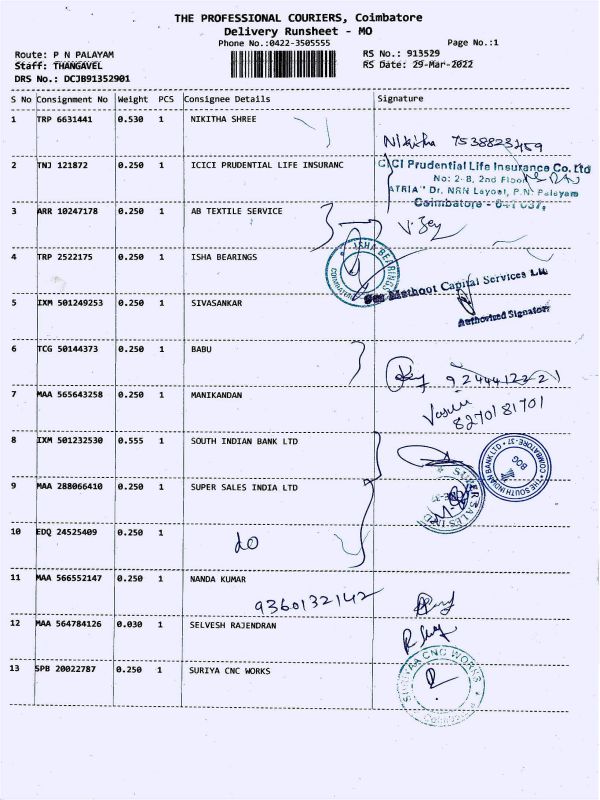 THE PROFESSIONAL COURIERS, Coimbatore
Delivery Runsheet - MO
Phone No.:0422-3505555
Page No.:1
Route: P N PALAYAM
RS No.: 913529
Staff: THANGAVEL
RS Date: 29-Mar-2022
DRS No.: DCJB91352901
S No Consignment No Weight PCS Consignee Details Signature
1 TRP 6631441 0.530 1 NIKITHA SHREE
Nikitha 7538823459
2 TNJ 121872 0.250 1 ICICI PRUDENTIAL LIFE INSURANC
ICICI Prudential Life Insurance Co. Ltd
No: 2-B, 2nd Floor
ATRIA" Dr. NRN Layout, P.N. Palayam
Coimbatore - 641 037.
3 ARR 10247178 0.250 1 AB TEXTILE SERVICE
4 TRP 2522175 0.250 1 ISHA BEARINGS
ISHA BEARINGS
COIMBATORE
Muthoot Capital Services Ltd
5 IXM 501249253 0.250 1 SIVASANKAR
Authorised Signatory
6 TCG 50144373 0.250 1 BABU
7 MAA 565643258 0.250 1 MANIKANDAN
8270181701
8 IXM 501232530 0.555 1 SOUTH INDIAN BANK LTD
THE SOUTH INDIAN BANK LTD
COIMBATORE - 37
9 MAA 288066410 0.250 1 SUPER SALES INDIA LTD
SUPER SALES IND
10 EDQ 24525409 0.250 1
do
11 MAA 566552147 0.250 1 NANDA KUMAR
9360132142
12 MAA 564784126 0.030 1 SELVESH RAJENDRAN
13 SPB 20022787 0.250 1 SURIYA CNC WORKS
CNC WORKS